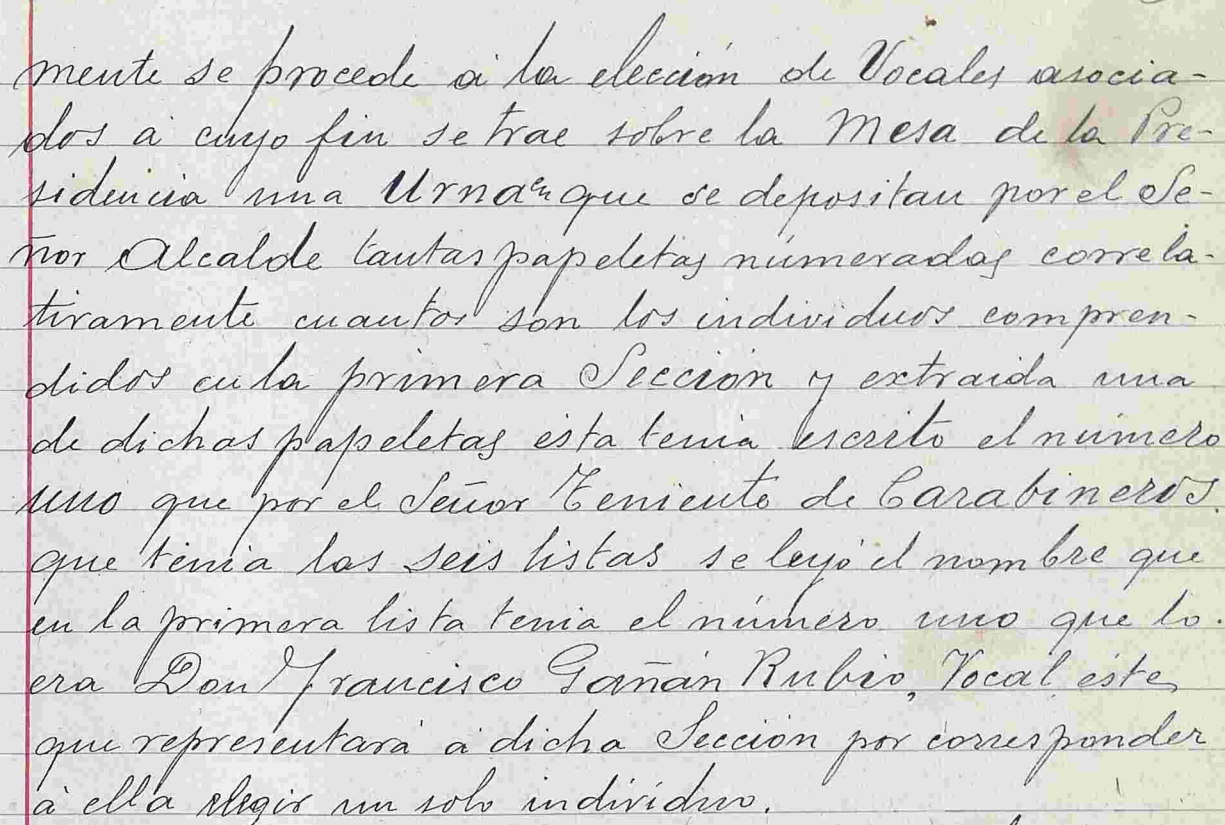 mente se procede á la elección de Vocales asocia-
dos á cuyo fin se trae sobre la Mesa de la Pre-
sidencia una Urna en que se depositan por el Se-
ñor Alcalde tantas papeletas númeradas correla-
tivamente cuantos son los individuos compren-
didos en la primera Sección y extraida una
de dichas papeletas ésta tenia escrito el número
uno que por el Señor Teniente de Carabineros
que tenia las seis listas se leyó el nombre que
en la primera lista tenia el número uno que lo
era Don Francisco Gañán Rubio, Vocal éste
que representará á dicha Sección por corresponder
á ella elegir un solo individuo.